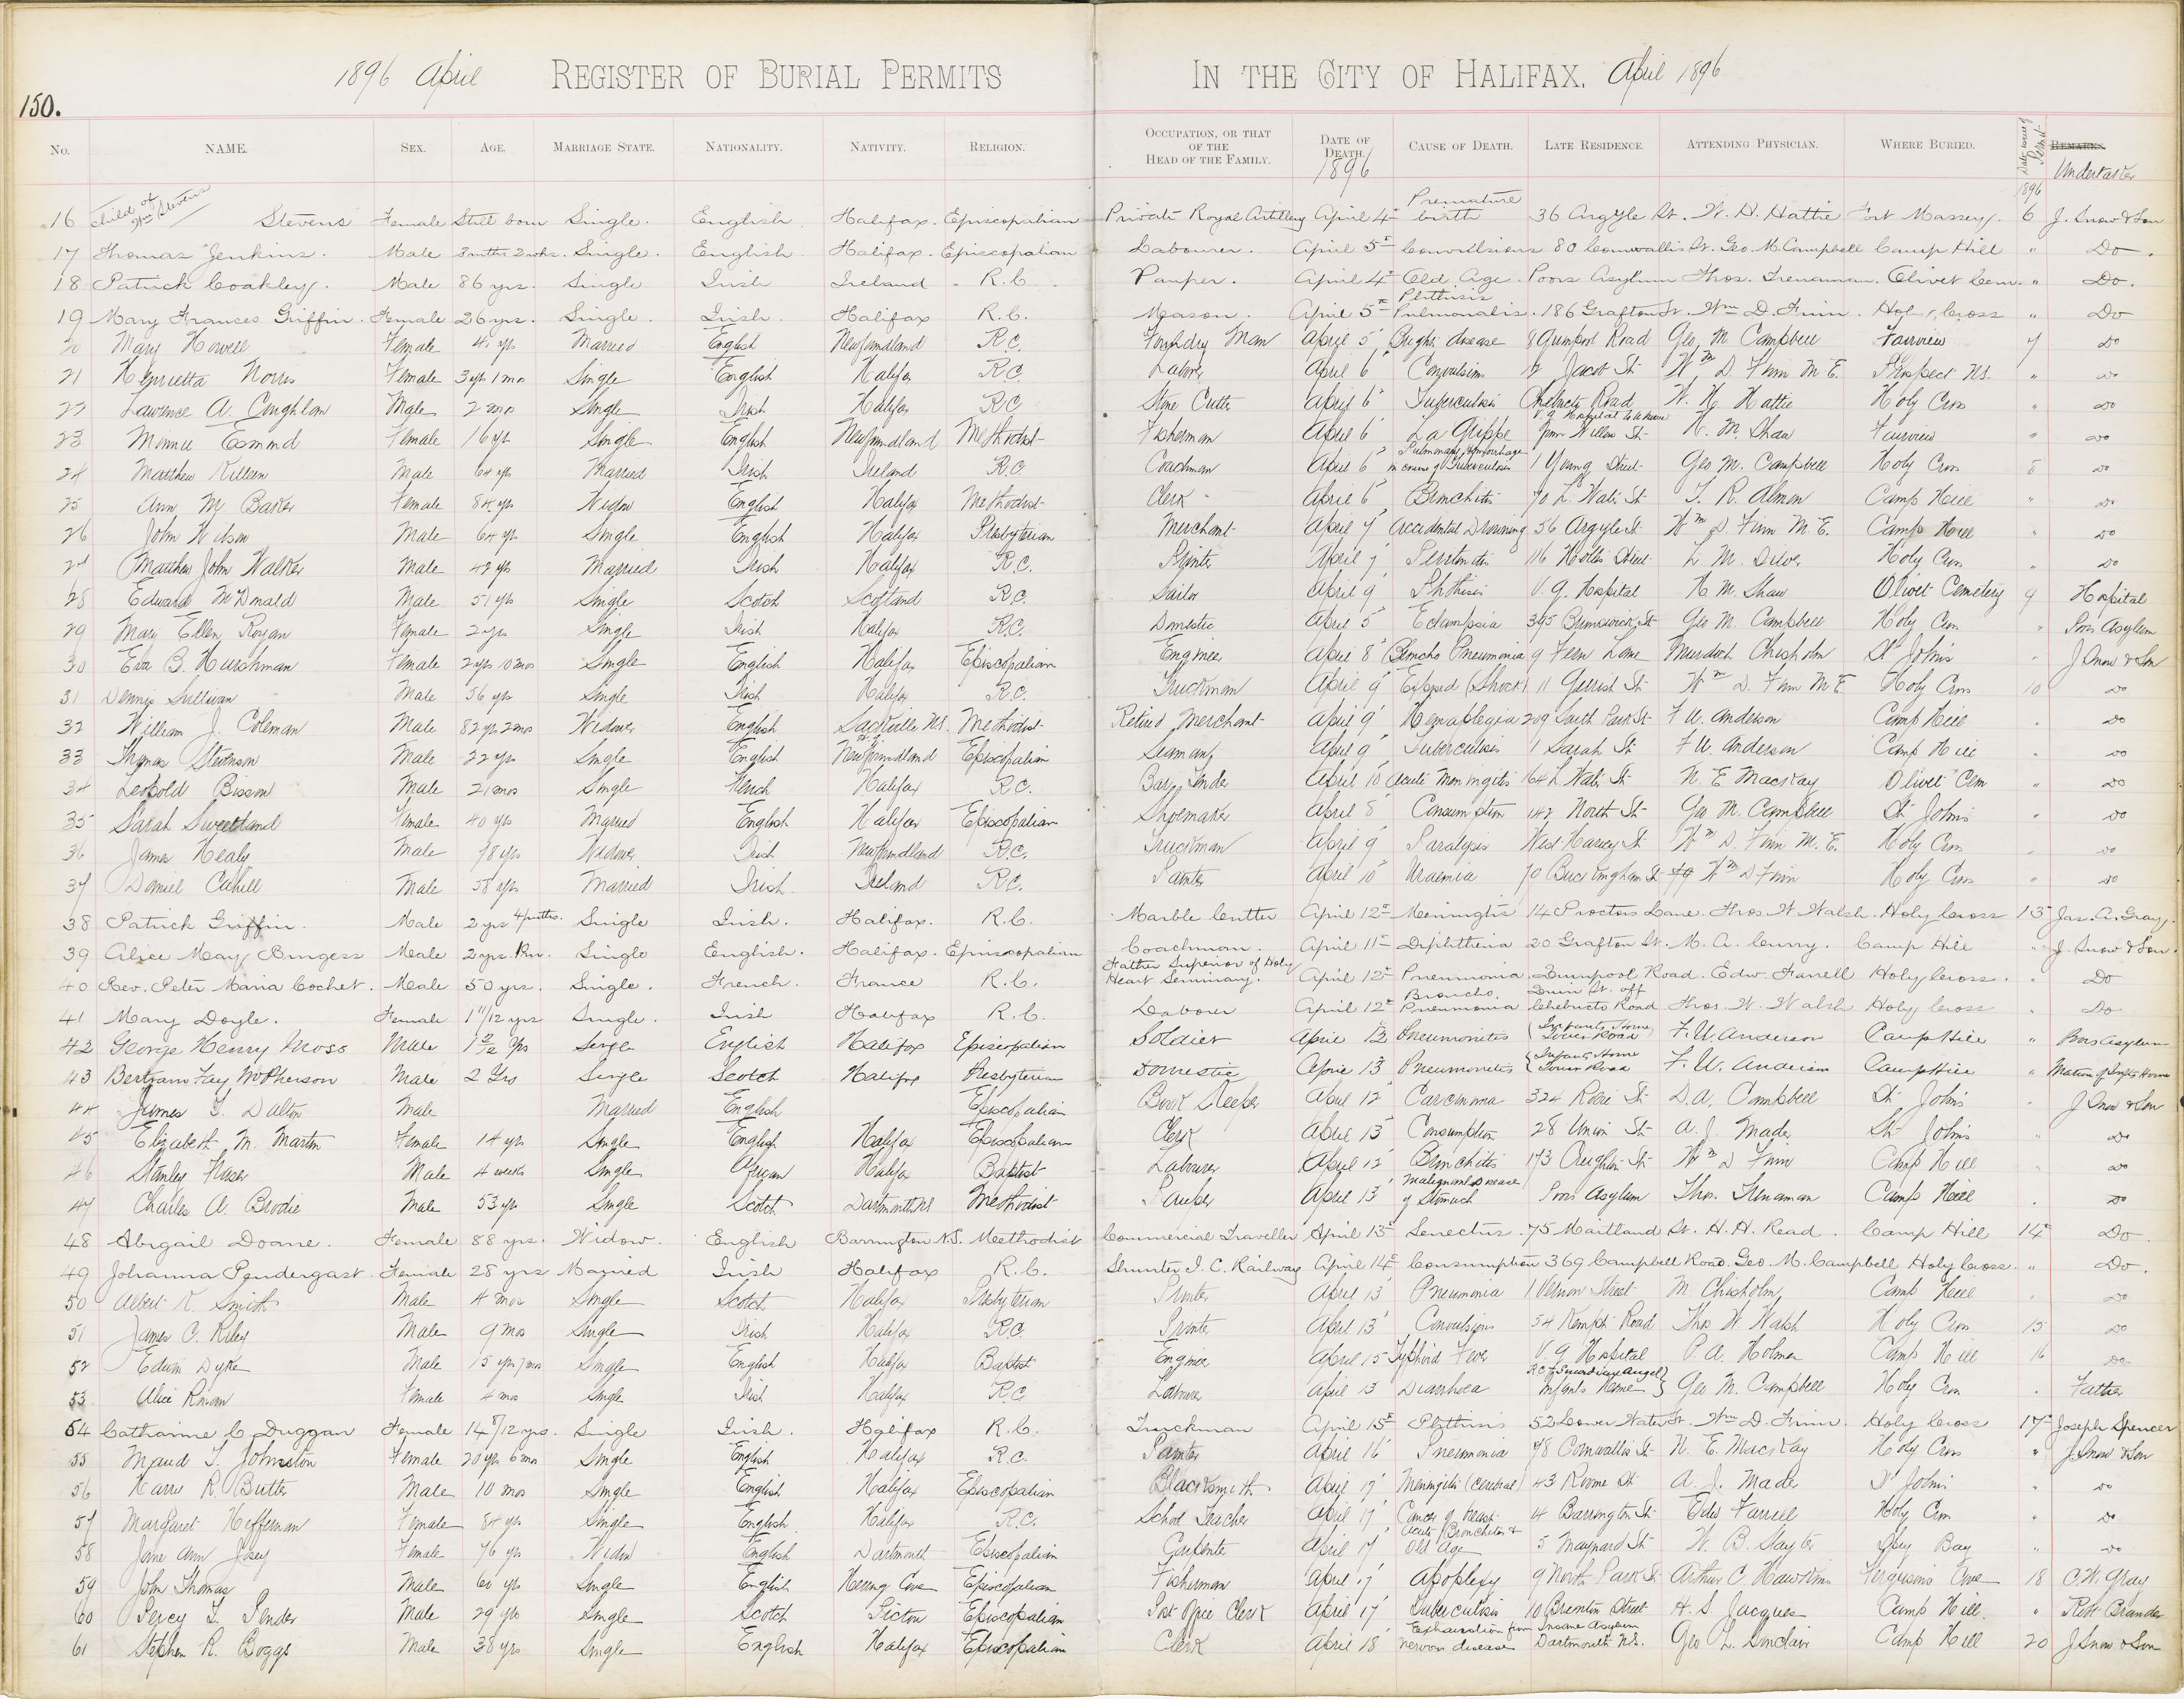 1896 April REGISTER OF BURIAL PERMITS IN THE CITY OF HALIFAX. April 1896
150.
No. NAME. SEX. AGE. MARRIAGE STATE. NATIONALITY. NATIVITY. RELIGION. OCCUPATION, OR THAT OF THE HEAD OF THE FAMILY. DATE OF DEATH. 1896 CAUSE OF DEATH. LATE RESIDENCE. ATTENDING PHYSICIAN. WHERE BURIED. 1896 REMARKS. Undertaker
16 Child of Wm Stevens Stevens Female Still born Single. English Halifax. Episcopalian Private Royal Artillery April 4th Premature birth 36 Argyle St. W. H. Hattie Fort Massey. 6 J. Snow & Son
17 Thomas Jenkins. Male 3 mths 2 wks. Single. English Halifax. Episcopalian Labourer. April 5th Convulsions 80 Cornwallis St. Geo. M. Campbell Camp Hill " Do.
18 Patrick Coakley. Male 86 yrs. Single Irish Ireland R.C. Pauper. April 4th Old Age. Poors Asylum Thos. Trenaman. Olivet Cem. " Do.
19 Mary Frances Griffin. Female 26 yrs. Single. Irish. Halifax R.C. Mason. April 5th Phthisis Pulmonalis. 186 Grafton St. Wm D. Finn. Holy Cross " Do
20 Mary Howell Female 41 yrs Married English Newfoundland R.C. Foundry Man April 5 Brights disease 8 Quinpool Road Geo M. Campbell Fairview 7 do
21 Henrietta Norris Female 3 yrs 1 mo Single English Halifax R.C. Laborer April 6 Convulsions 2 Jacob St Wm D. Finn M.E. Prospect N.S. " do
22 Lawrence A. Coughlan Male 2 mos Single Irish Halifax R.C. Stone Cutter April 6 Tuberculosis Chebucto Road W. H. Hattie Holy Cross " do
23 Minnie Esmond Female 16 yrs Single English Newfoundland Methodist Fisherman April 6 La Grippe V.G. Hospital from Willow St H. M. Shaw Fairview " do
24 Matthew Killeen Male 64 yrs Married Irish Ireland R.C. Coachman April 6 Pulmonary hemorrhage in course of Tuberculosis 1 Young Street Geo M. Campbell Holy Cross 8 do
25 Ann M. Baker Female 84 yrs Widow English Halifax Methodist Clerk April 6 Bronchitis 70 L. Water St T. R. Almon Camp Hill " do
26 John Wilson Male 64 yrs Single English Halifax Presbyterian Merchant April 7 Accidental Drowning 56 Argyle St Wm D Finn M.E. Camp Hill " do
27 Matthew John Walker Male 42 yrs Married Irish Halifax R.C. Printer April 7 Peritonitis 116 Hollis Street L. M. Silver Holy Cross " do
28 Edward McDonald Male 51 yrs Single Scotch Scotland R.C. Sailor April 9 Phthisis V. G. Hospital H M. Shaw Olivet Cemetery 9 Hospital
29 Mary Ellen Rogan Female 2 yrs Single Irish Halifax R.C. Domestic April 5 Eclampsia 395 Brunswick St Geo M. Campbell Holy Cross " Poors Asylum
30 Eva B. Hurshman Female 2 yrs 10 mos Single English Halifax Episcopalian Engineer April 8 Broncho Pneumonia 9 Fern Lane Murdoch Chisholm St Johns " J Snow & Son
31 Dennis Sullivan Male 56 yrs Single Irish Halifax R.C. Truckman April 9 (Shock) 11 Gerrish St Wm D. Finn M.E Holy Cross 10 do
32 William J. Coleman Male 82 yrs 2 mos Widower English Sackville N.S. Methodist Retired Merchant April 9 Hemaplegia 209 South Park St F. U. Anderson Camp Hill " do
33 Thomas Stevenson Male 22 yrs Single English Newfoundland Episcopalian Seaman April 9 Tuberculosis 1 Sarah St F U. Anderson Camp Hill " do
34 Leopold Bisson Male 21 mos Single French Halifax R.C. Bar Tender April 10 Acute Meningitis 164 L Water St N. E MacKay Olivet Cem " do
35 Sarah Sweetland Female 40 yrs Married English Halifax Episcopalian Shoemaker April 8 Consumption 142 North St Geo M. Campbell St Johns " do
36 James Healy Male 78 yrs Widower Irish Newfoundland R.C. Truckman April 9 Paralysis West Harvey St Wm D. Finn M.E. Holy Cross " do
37 Daniel Cahill Male 58 yrs Married Irish Ireland R.C. Painter April 10 Uraemia 70 Buckingham St Wm D Finn Holy Cross " do
38 Patrick Griffin. Male 2 yrs 4 mths. Single Irish. Halifax. R.C. Marble Cutter April 12th Meningitis 14 Proctors Lane. Thos. W Walsh. Holy Cross 13 Jas. A. Gray.
39 Alice May Burgess Male 2 yrs. Single English. Halifax. Episcopalian Coachman. April 11th Diphtheria 20 Grafton St. M. A. Curry. Camp Hill " J. Snow & Son.
40 Rev. Peter Maria Cochet. Male 50 yrs. Single. French. France R.C. Father Superior of Holy Heart Seminary. April 12th Pneumonia. Quinpool Road. Edw. Farrell Holy Cross. " Do
41 Mary Doyle. Female 1 11/12 yrs Single. Irish Halifax R.C. Laborer April 12th Broncho. Pneumonia Duin St. off Chebucto Road Thos. W. Walsh Holy Cross " Do
42 George Henry Moss Male Single English Halifax Episcopalian Soldier April 12 Pneumonitis Infants Home Tower Road F. U. Anderson Camp Hill " Poors Asylum
43 Bertram Fay McPherson Male 2 Yrs Single Scotch Halifax Presbyterian Domestic April 13 Pneumonitis Infants Home Tower Road F. U. Anderson Camp Hill " Matron of Infts Home
44 James T. Dalton Male Married English Episcopalian Book Keeper April 12 Carcinoma 324 St D. A. Campbell St Johns " J Snow & Son
45 Elizabeth M. Martin Female 14 yrs Single English Halifax Episcopalian Clerk April 13 Consumption 28 Union St A. J. Mader St Johns " do
46 Stanley Fraser Male 4 weeks Single African Halifax Baptist Labourer April 12 Bronchitis 173 Creighton St Wm D Finn Camp Hill " do
47 Charles A. Brodie Male 53 yrs Single Scotch Dartmouth NS Methodist Pauper April 13 Malignant Disease of Stomach Poors Asylum Thos. Trenaman Camp Hill " do
48 Abigail Doane. Female 88 yrs. Widow. English Barrington N.S. Methodist Commercial Traveller April 13th Senectus. 75 Maitland St. H. H. Read. Camp Hill 14th Do.
49 Johanna Pendergast. Female 28 yrs Married Irish Halifax R.C. Shunter I. C. Railway April 14th Consumption 369 Campbell Road. Geo. M. Campbell Holy Cross. " Do.
50 Albert K. Smith Male 4 mos Single Scotch Halifax Presbyterian Printer April 13 Pneumonia 1 Vernon Street M Chisholm Camp Hill " do
51 James C. Riley Male 9 mos Single Irish Halifax R.C. Printer April 13 Convulsions 54 Kempt Road Thos W Walsh Holy Cross 15 do
52 Edwin Dyke Male 15 yrs 7 mos Single English Halifax Baptist Engineer April 15 Typhoid Fever V. G Hospital P. A. Holmes Camp Hill 16 do
53 Alice Female 4 mos Single Irish Halifax R.C Laborer April 13 Diarrhoea R.C. Guardian Angel Infants Home Geo M. Campbell Holy Cross " Father
54 Catharine C. Duggan Female 14 8/12 yrs. Single Irish. Halifax R.C. Truckman April 15th Phthisis 52 Lower Water St. Wm D. Finn. Holy Cross 17th Joseph Spencer
55 Maud T. Johnston Female 20 yrs 6 mos Single English Halifax R.C. Painter April 16 Pneumonia 78 Cornwallis St N. E. MacKay Holy Cross " J Snow & Son
56 Harris R. Butler Male 10 mos Single English Halifax Episcopalian Blacksmith April 17 Meningitis (cerebral) 43 Roome St A. J. Mader St Johns " do
57 Margaret Heffernan Female 84 yrs Single English Halifax R.C. School Teacher April 17 Cancer of breast 14 Barrington St Edw Farrell Holy Cross " do
58 Jane Ann Josey Female 76 yrs Widow English Dartmouth Episcopalian Carpenter April 17 Acute Bronchitis & Old Age 5 Maynard St W. B. Slayter Spry Bay " do
59 John Thomas Male 60 yrs Single English Herring Cove Episcopalian Fisherman April 17 Apoplexy 9 North Park St Arthur C Hawkins Fergusons Cove 18 C. W. Gray
60 Percy T. Pender Male 29 yrs Single Scotch Pictou Episcopalian Post Office Clerk April 17 Tuberculosis 10 Brenton Street H. S Jacques Camp Hill. " Robt Brander
61 Stephen R. Boggs Male 38 yrs Single English Halifax Episcopalian Clerk April 18 Exhaustion from nervous disease Insane Asylum Dartmouth N.S. Geo L. Sinclair Camp Hill 20 J Snow & Son